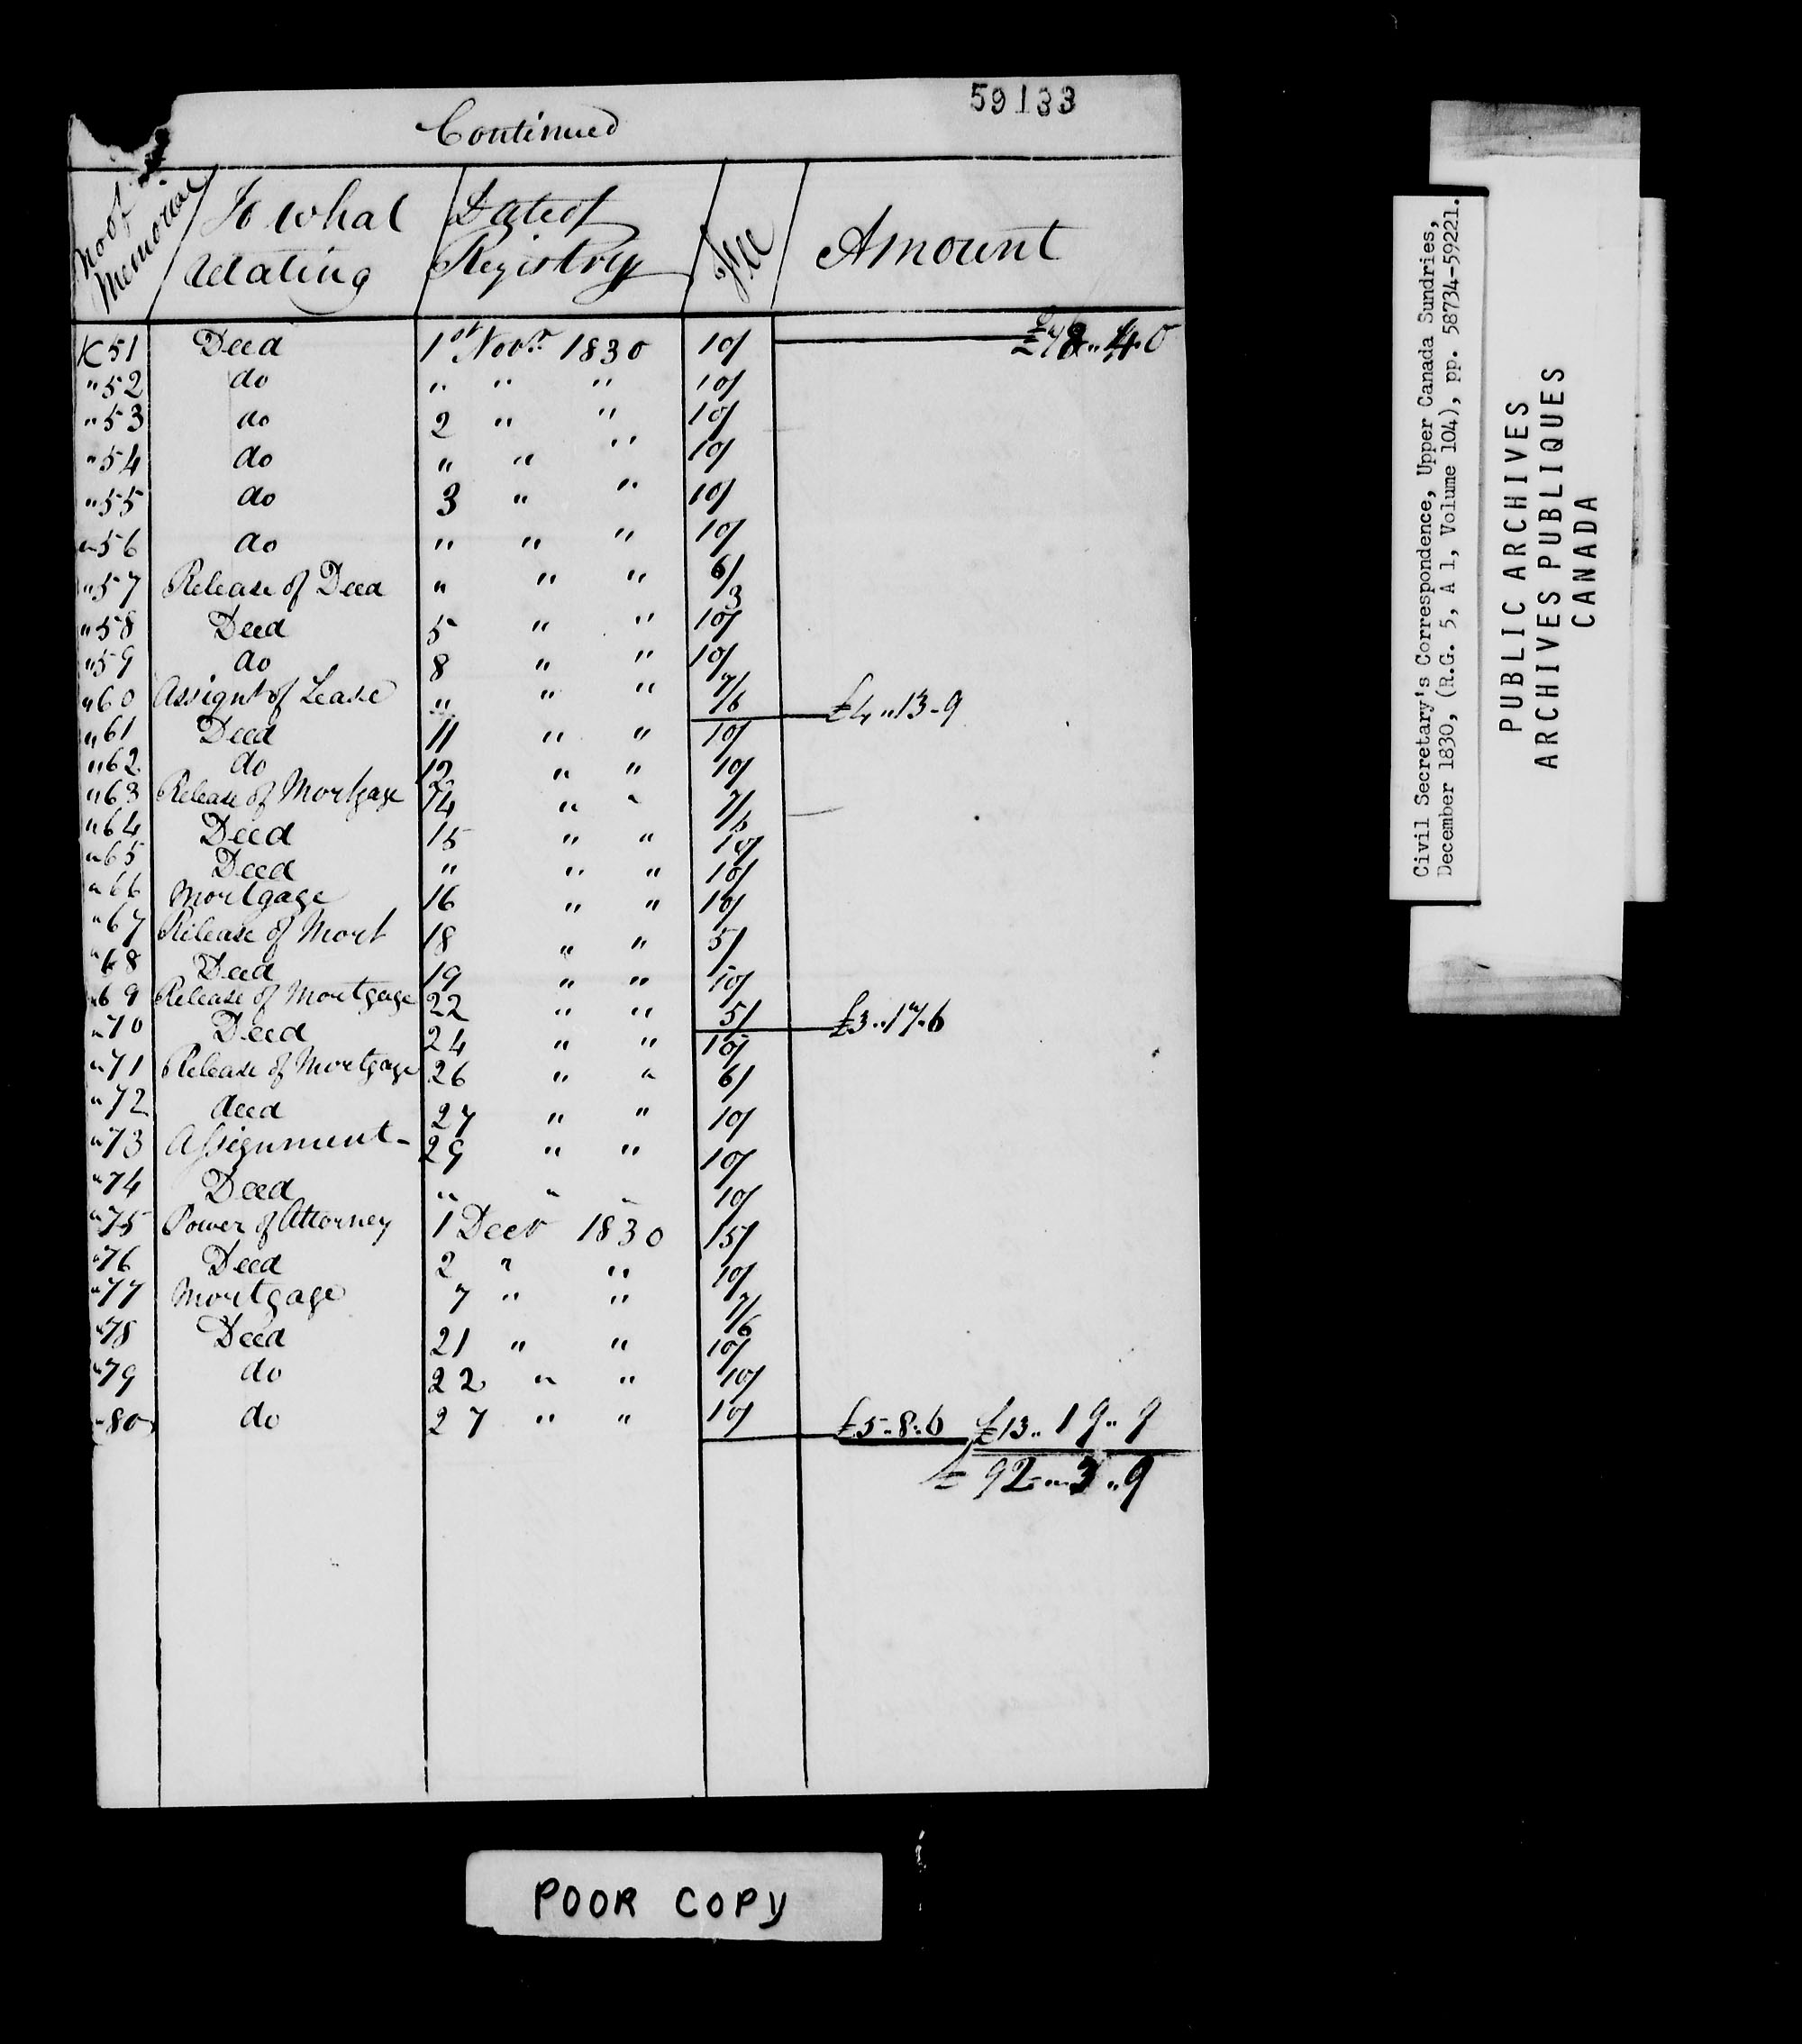 59133
Continued
No of Memorial To what relating Date of Registry Fee Amount
K 51 Deed 1st Novr 1830 10/ £78 .. 4 . 0
" 52 do " " " 10/
" 53 do 2 " " 10/
" 54 do " " " 10/
" 55 do 3 " " 10/
" 56 do " " " 10/
" 57 Release of Deed " " " 6/3
" 58 Deed 5 " " 10/
" 59 do 8 " " 10/
" 60 Assignt of Lease " " " 7/6 £4 .. 13 - 9
" 61 Deed 11 " " 10/
" 62 do 12 " " 10/
" 63 Release of Mortgage 14 " " 7/6
" 64 Deed 15 " " 10/
" 65 Deed " " " 10/
" 66 Mortgage 16 " " 10/
" 67 Release of Mort 18 " " 5/
" 68 Deed 19 " " 10/
" 69 Release of Mortgage 22 " " 5/ £3 .. 17 . 6
" 70 Deed 24 " " 10/
" 71 Release of Mortgage 26 " " 6/
" 72 deed 27 " " 10/
" 73 Assignment - 29 " " 10/
" 74 Deed " " " 10/
" 75 Power of Attorney 1 Decr 1830 15/
" 76 Deed 2 " " 10/
" 77 Mortgage 7 " " 7/6
" 78 Deed 21 " " 10/
" 79 do 22 " " 10/
" 80 do 27 " " 10/ £5 .. 8 . 6 £13 .. 19 .. 9
£ 92 .. 3 .. 9
POOR COPY
Civil Secretary's Correspondence, Upper Canada Sundries,
December 1830, (R.G. 5, A 1, Volume 104), pp. 58734-59221.
PUBLIC ARCHIVES
ARCHIVES PUBLIQUES
CANADA